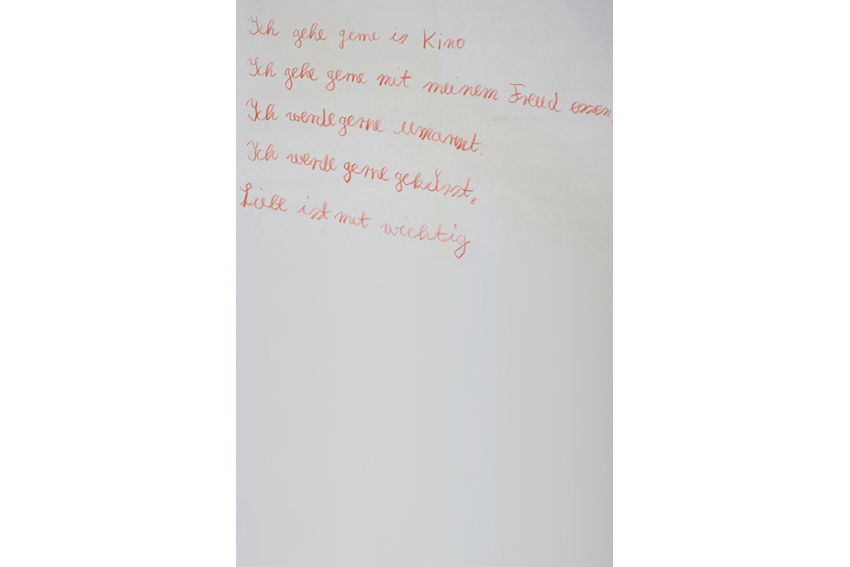 Ich gehe gerne is Kino
Ich gehe gerne mit meinem Freud essen.
Ich werde gerne Umarmt.
Ich werde gerne geküsst.
Liebe ist mit wichtig